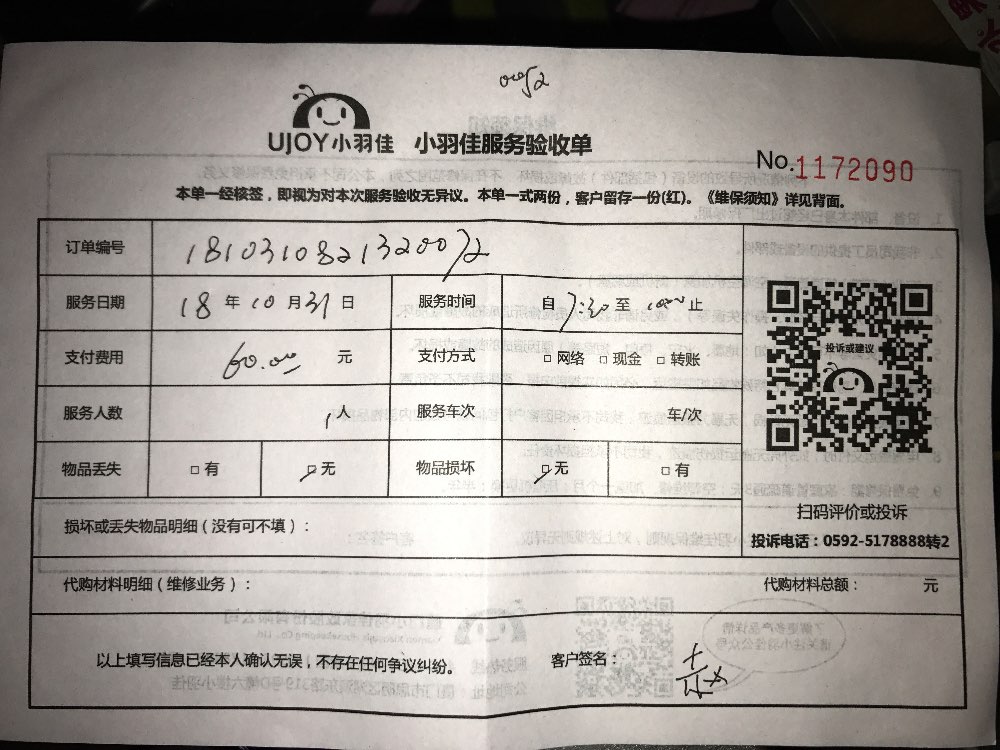 UJOY小羽佳 小羽佳服务验收单
No.1172090
本单一经核签，即视为对本次服务验收无异议。本单一式两份，客户留存一份(红)。《维保须知》详见背面。
订单编号 1810310821320072
服务日期 18 年 10 月 31 日 服务时间 自 7:30 至 止
支付费用 60.00 元 支付方式 □ 网络 □ 现金 □ 转账
投诉或建议
服务人数 1 服务车次 车/次
物品丢失 □ 有 □ 无 物品损坏 □ 无 □ 有
扫码评价或投诉
损坏或丢失物品明细（没有可不填）：
投诉电话：0592-5178888转2
代购材料明细（维修业务）： 代购材料总额： 元
以上填写信息已经本人确认无误，不存在任何争议纠纷。 客户签名：